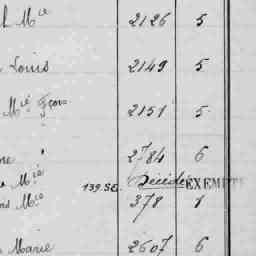 l Mie 2126 5
Louis 2149 5
Mie Fçois 2151 5
ne 2784 6
e Mie 139.SE. Décédée EXEMPT
ns Mie 378 1
Marie 2607 6